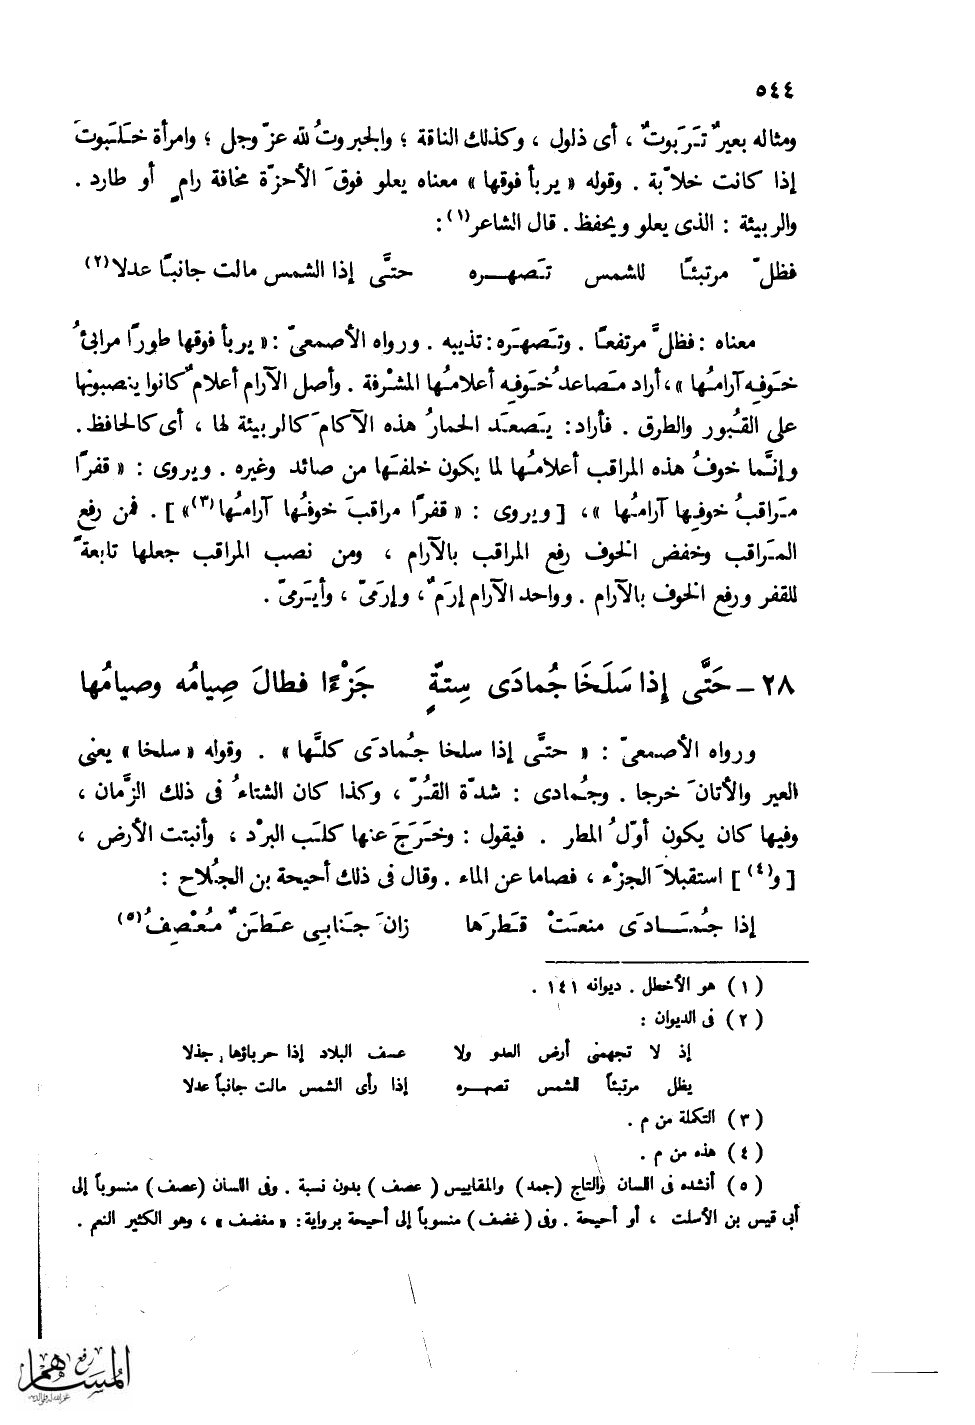 ٥٤٤
ومثاله بعيرٌ تَرَبوتٌ ، أى ذلول ، وكذلك الناقة ؛ والجبروتُ لله عزّ وجل ؛ وامرأة خَلَبوتَ
إذا كانت خلاّبة . وقوله « يربأ فوقها » معناه يعلو فوقَ الأحزّة مخافة رامٍ أو طارد .
والربيئة : الذى يعلو ويحفظ . قال الشاعر(١):
فظلّ مرتبئًا للشمس تَصهره حتَّى إذا الشمس مالت جانبًا عدلا(٢)
معناه : فظلَّ مرتفعًا . وتَصهَره : تذيبه . ورواه الأصمعىّ : « يربأ فوقها طورًا مرابئُ
خَوفِه آرامُها » ، أراد مَصاعدُ خَوفِه أعلامُها المشرفة . وأصل الآرام أعلامٌ كانوا ينصبونها
على القُبور والطرق . فأراد : يَصعَد الحمارُ هذه الآكامَ كالربيئة لها ، أى كالحافظ .
وإنَّما خوفُ هذه المراقب أعلامُها لما يكون خلفَها من صائد وغيره . ويروى : « قفرًا
مَراقبُ خوفِها آرامُها » ، [ ويروى : « قفرًا مراقبَ خوفُها آرامُها(٣)» ] . فمن رفع
المَراقب وخفض الخوف رفع المراقب بالآرام ، ومن نصب المراقب جعلها تابعةً
للقفر ورفع الخوف بالآرام . وواحد الآرام إرَمٌ ، وإرَمىّ ، وأيَرمىّ .
٢٨ – حَتَّى إذا سَلَخَا جُمادَى سِتةٍ جَزْءًا فطالَ صِيامُه وصيامُها
ورواه الأصمعىّ : « حتَّى إذا سلخا جُمادَى كلَّها » . وقوله « سلخا » يعنى
العير والأتانَ خرجا . وجُمادى : شدّة القُرّ ، وكذا كان الشتاءُ فى ذلك الزَّمان ،
وفيها كان يكون أوّلُ المطر . فيقول : وخَرَجَ عنها كلَب البرْد ، وأنبتت الأرض ،
[ و(٤) ] استقبلاَ الجزْء ، فصاما عن الماء . وقال فى ذلك أحيحة بن الجُلاح :
إذا جُمَادَى منعتْ قَطرَها زانَ جَنابِى عَطَنٌ مُعْصِفُ(٥)
(١) هو الأخطل . ديوانه ١٤١ .
(٢) فى الديوان :
إذ لا تجهمنى أرض العدو ولا عسف البلاد إذا حرباؤها جذلا
يظل مرتبئاً للشمس تصهره إذا رأى الشمس مالت جانباً عدلا
(٣) التكملة من م .
(٤) هذه من م .
(٥) أنشده فى اللسان والتاج (جمد) والمقاييس (عصف) بدون نسبة . وفى اللسان (عصف) منسوباً إلى
أبي قيس بن الأسلت ، أو أحيحة . وفى (غضف) منسوباً إلى أحيحة برواية : « مغضف » ، وهو الكثير النعم .